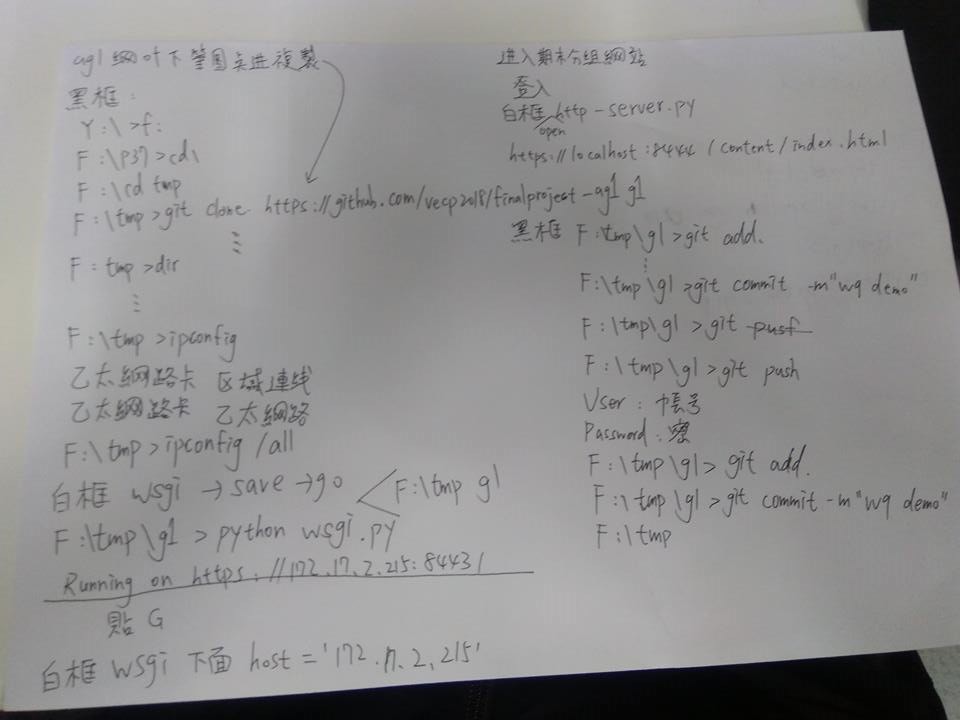 ag1 網叶下 筆圖点进複製
黑框:
Y:\>f:
F:\P37>cd\
F:\cd tmp
F:\tmp>git clone https://github.com/vecp2018/finalproject-ag1 g1
⋮
F: tmp >dir
⋮
F:\tmp>ipconfig
乙太網路卡 区域連线
乙太網路卡 乙太網路
F:\tmp>ipconfig /all
白框 wsgi →save →go < F:\tmp g1
F:\tmp\g1 > python wsgi.py
Running on https://172.17.2.215:8443/
貼 G
白框 wsgi 下面 host = '172.17.2.215'
进入期末分组網站
登入
白框 http-server.py
open
https://localhost:8444/content/index.html
黑框 F:\tmp\g1>git add.
⋮
F:\tmp\g1>git commit -m"wq demo"
F:\tmp\g1 >git pusf
F:\tmp\g1>git push
User : 帳号
Password : 密
F:\tmp\g1> git add.
F:\tmp\g1>git commit -m"wq demo"
F:\tmp